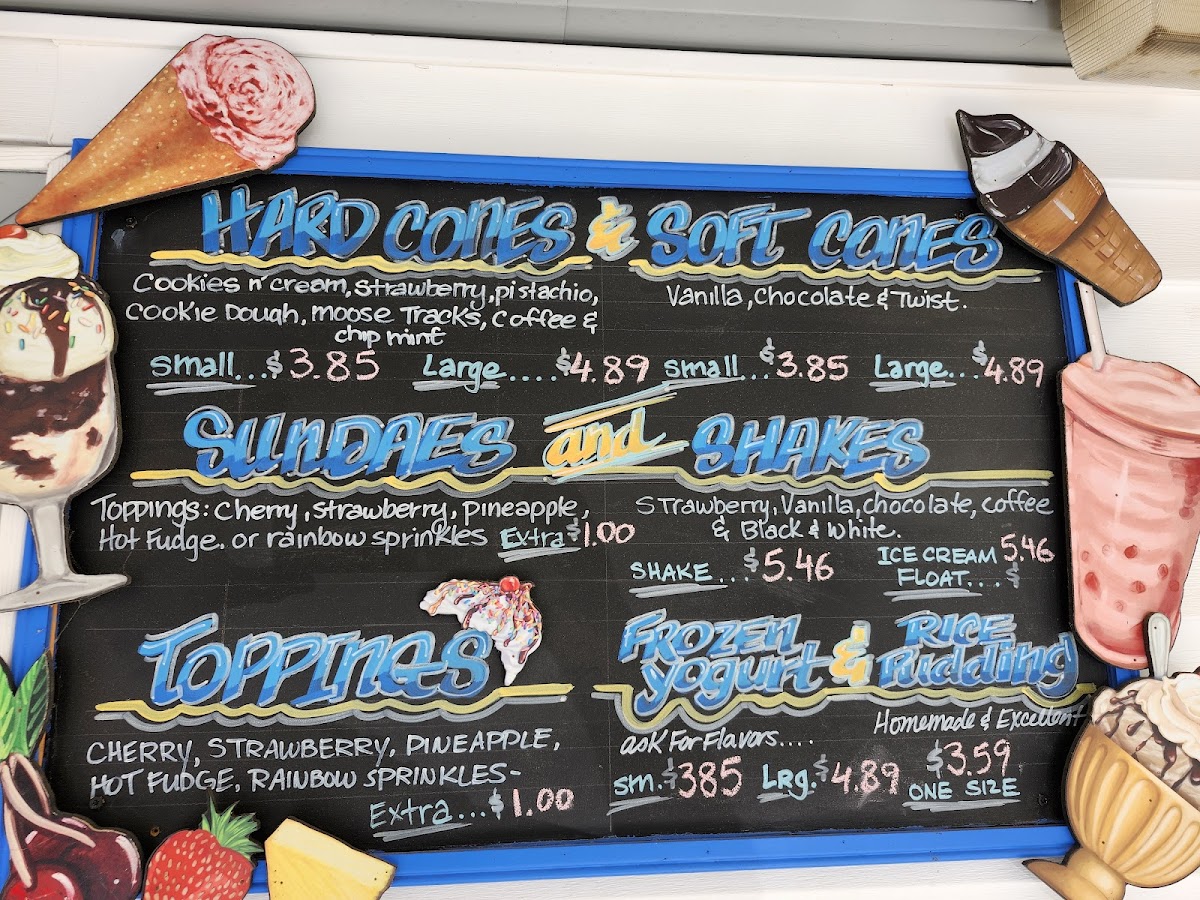 HARD CONES & SOFT CONES
Cookies n' cream, Strawberry, pistachio,
Cookie Dough, Moose Tracks, Coffee &
chip mint
Small...$3.85 Large....$4.89
Vanilla, Chocolate & Twist.
Small...$3.85 Large...$4.89
SUNDAES and SHAKES
Toppings: Cherry, strawberry, pineapple,
Hot Fudge. or rainbow sprinkles Extra $1.00
Strawberry, Vanilla, chocolate, coffee
& Black & White.
SHAKE...$5.46
ICE CREAM 5.46
FLOAT...$
TOPPINGS
CHERRY, STRAWBERRY, PINEAPPLE,
HOT FUDGE, RAINBOW SPRINKLES-
Extra...$1.00
FROZEN
yogurt & RICE
Pudding
ask For Flavors....
Sm.$385 Lrg.$4.89
Homemade & Excellent
$3.59
ONE SIZE